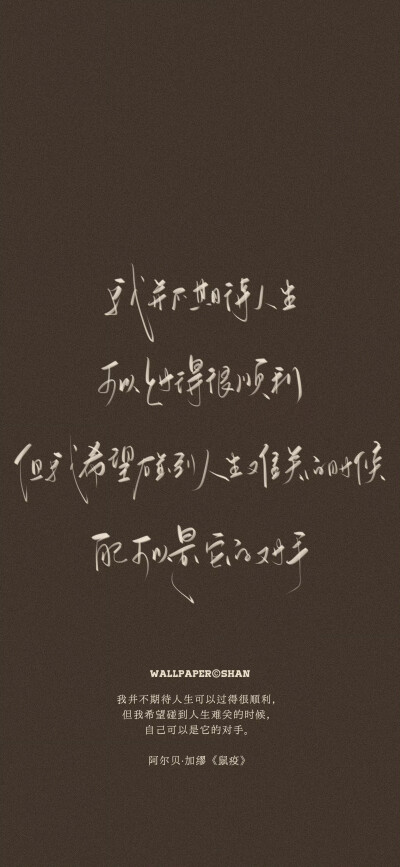 我并不期待人生
可以过得很顺利
但我希望碰到人生难关的时候
配可以是它的对手
WALLPAPER©SHAN
我并不期待人生可以过得很顺利,
但我希望碰到人生难关的时候,
自己可以是它的对手。
阿尔贝·加缪《鼠疫》